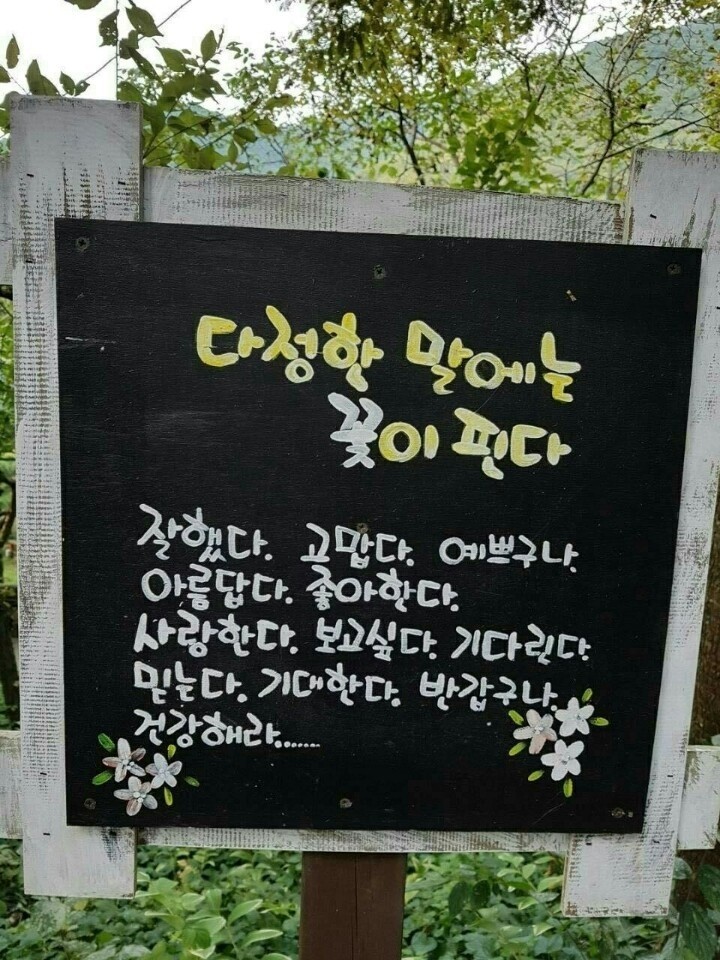 다정한 말에는
꽃이 핀다
잘했다. 고맙다. 예쁘구나.
아름답다. 좋아한다.
사랑한다. 보고싶다. 기다린다.
믿는다. 기대한다. 반갑구나.
건강해라.......